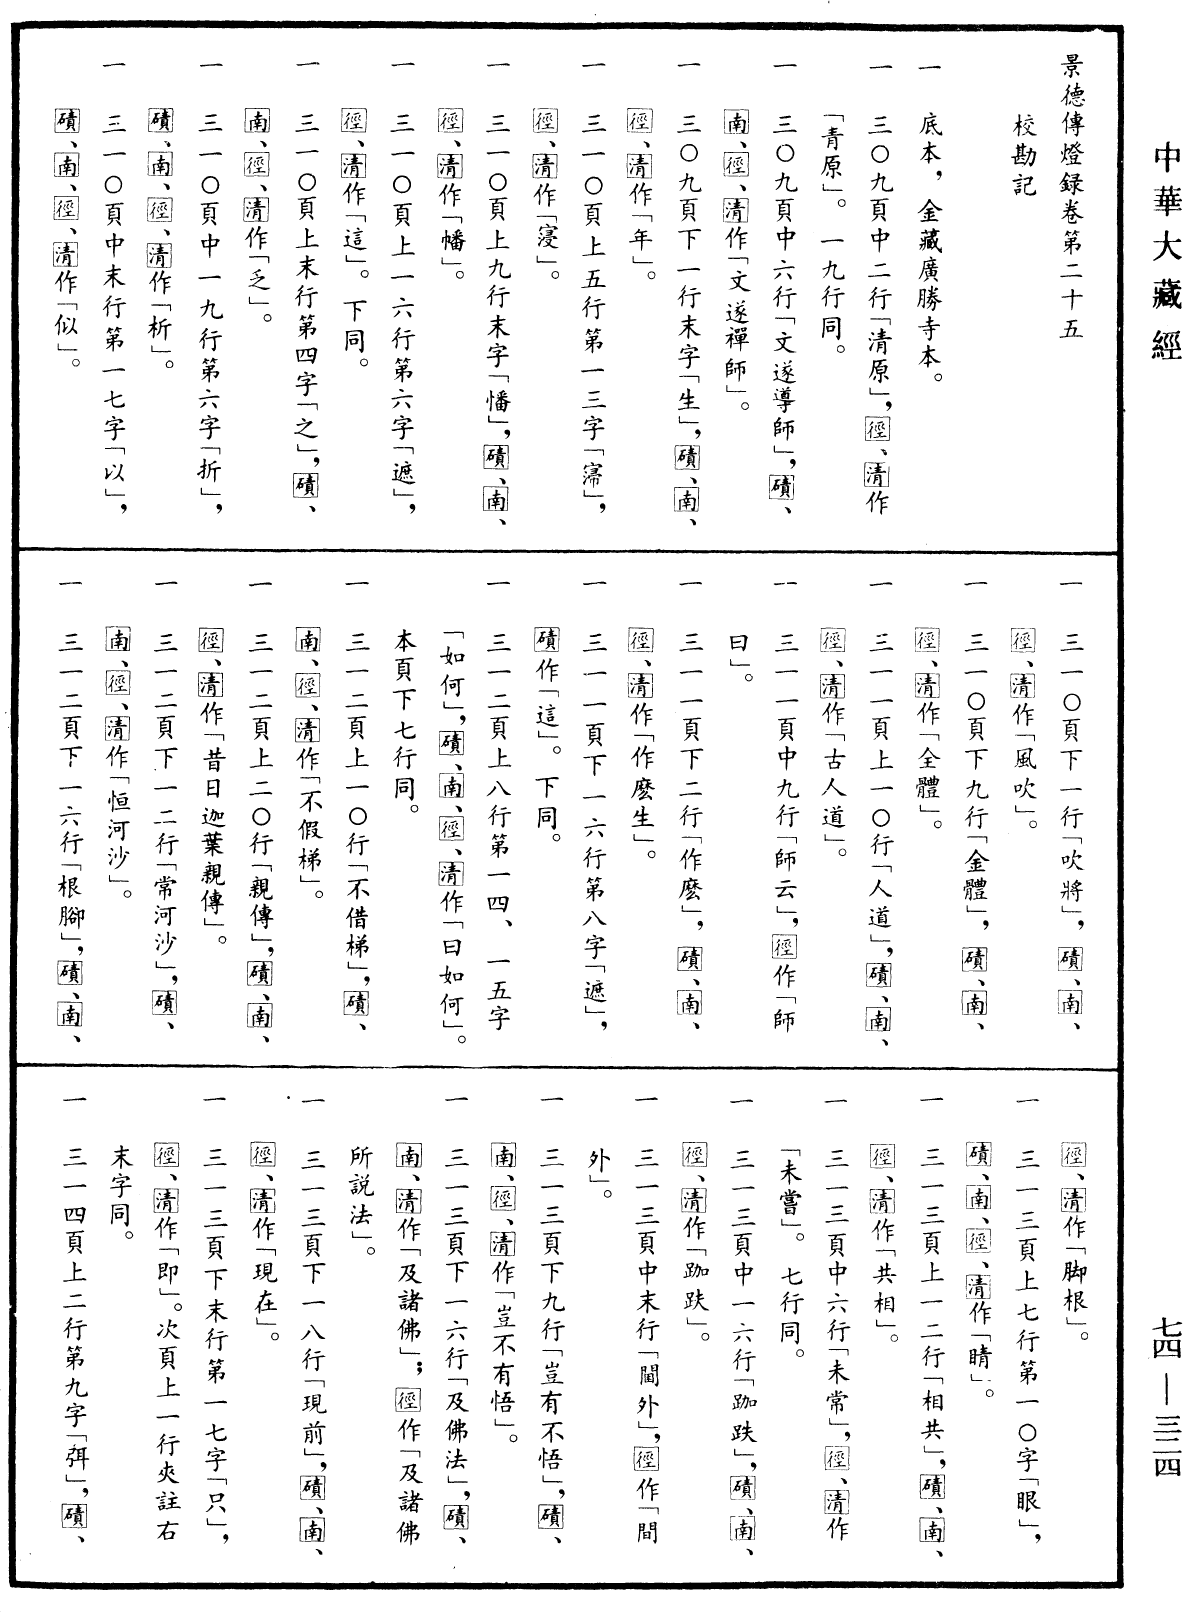 中華大藏經
景德傳燈錄卷第二十五
校勘記
一　底本，金藏廣勝寺本。
一　三〇九頁中二行「清原」，徑、清作
「青原」。一九行同。
一　三〇九頁中六行「文遂導師」，磧、
南、徑、清作「文遂禪師」。
一　三〇九頁下一行末字「生」，磧、南、
徑、清作「年」。
一　三一〇頁上五行第一三字「寱」，
徑、清作「寖」。
一　三一〇頁上九行末字「憣」，磧、南、
徑、清作「幡」。
一　三一〇頁上一六行第六字「遮」，
徑、清作「這」。下同。
一　三一〇頁上末行第四字「之」，磧、
南、徑、清作「乏」。
一　三一〇頁中一九行第六字「折」，
磧、南、徑、清作「析」。
一　三一〇頁中末行第一七字「以」，
磧、南、徑、清作「似」。
一　三一〇頁下一行「吹將」，磧、南、
徑、清作「風吹」。
一　三一〇頁下九行「金體」，磧、南、
徑、清作「全體」。
一　三一一頁上一〇行「人道」，磧、南、
徑、清作「古人道」。
一　三一一頁中九行「師云」，徑作「師
曰」。
一　三一一頁下二行「作麽」，磧、南、
徑、清作「作麽生」。
一　三一一頁下一六行第八字「遮」，
磧作「這」。下同。
一　三一二頁上八行第一四、一五字
「如何」，磧、南、徑、清作「曰如何」。
本頁下七行同。
一　三一二頁上一〇行「不借梯」，磧、
南、徑、清作「不假梯」。
一　三一二頁上二〇行「親傳」，磧、南、
徑、清作「昔日迦葉親傳」。
一　三一二頁下一二行「常河沙」，磧、
南、徑、清作「恒河沙」。
一　三一二頁下一六行「根腳」，磧、南、
徑、清作「脚根」。
一　三一三頁上七行第一〇字「眼」，
磧、南、徑、清作「睛」。
一　三一三頁上一二行「相共」，磧、南、
徑、清作「共相」。
一　三一三頁中六行「未常」，徑、清作
「未嘗」。七行同。
一　三一三頁中一六行「跏跌」，磧、南、
徑、清作「跏趺」。
一　三一三頁中末行「閫外」，徑作「間
外」。
一　三一三頁下九行「豈有不悟」，磧、
南、徑、清作「豈不有悟」。
一　三一三頁下一六行「及佛法」，磧、
南、清作「及諸佛」；徑作「及諸佛
所說法」。
一　三一三頁下一八行「現前」，磧、南、
徑、清作「現在」。
一　三一三頁下末行第一七字「只」，
徑、清作「即」。次頁上一行夾註右
末字同。
一　三一四頁上二行第九字「弭」，磧、
七四—三二四